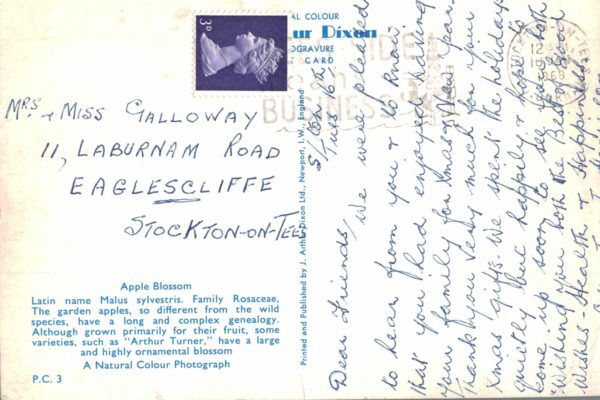 AL COLOUR
ur Dixon
OGRAVURE
CARD
3D
BUSINESS
1968
Mrs & Miss Galloway
11, Laburnam Road
Eaglescliffe
Stockton-on-Tees
Apple Blossom
Latin name Malus sylvestris. Family Rosaceae,
The garden apples, so different from the wild
species, have a long and complex genealogy.
Although grown primarily for their fruit, some
varieties, such as "Arthur Turner," have a large
and highly ornamental blossom
A Natural Colour Photograph
P.C. 3
Printed and Published by J. Arthur Dixon Ltd., Newport, I.W., England
Tues
Dear Friends, We were pleased
to hear from you & to know
that you had enjoyed having
your family for Xmas & New Year
Thank you very much for your
Xmas gifts. We spent the holidays
quietly but happily & hope to
come up soon to see you both
Wishing you both the Best of Good
Wishes - Health & Happiness